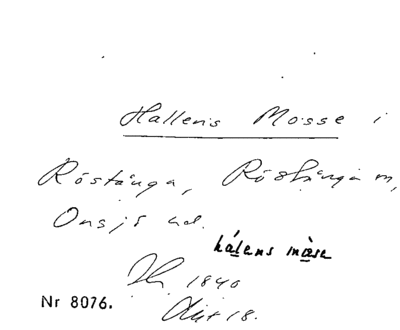 Hallens Mosse i
Röstånga, Röstånga m,
Onsjö hd.
hálens mòse
1840
Nr 8076.
18.